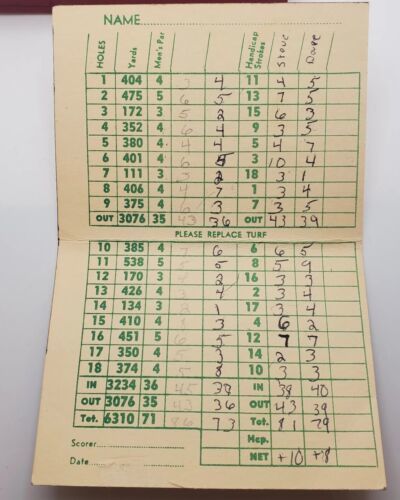 NAME
HOLES Yards Men's Par Handicap Strokes Steve Dave
1 404 4 3 4 11 4 5
2 475 5 6 5 13 7 5
3 172 3 5 2 15 6 3
4 352 4 6 4 9 3 5
5 380 4 4 4 5 4 7
6 401 4 6 5 3 10 4
7 111 3 3 2 18 3 1
8 406 4 4 7 1 3 4
9 375 4 6 3 7 3 5
OUT 3076 35 43 36 OUT 43 39
PLEASE REPLACE TURF
10 385 4 6 6 6 5
11 538 5 5 8 5 9
12 170 3 2 16 3 3
13 426 4 4 2 3 4
14 134 3 1 17 3 4
15 410 4 3 4 6 2
16 451 5 5 12 7 7
17 350 4 3 14 2 3
18 374 4 8 10 3 3
IN 3234 36 45 38 IN 38 40
OUT 3076 35 43 36 OUT 43 39
Tot. 6310 71 73 Tot. 81 79
Scorer Hcp.
Date NET +10 +8